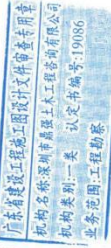 广东省建设工程施工图设计文件审查专用章
机构名称:深圳市鼎建土木工程咨询有限公司
机构类别:一类 认定书编号:19086
业务范围:工程勘察